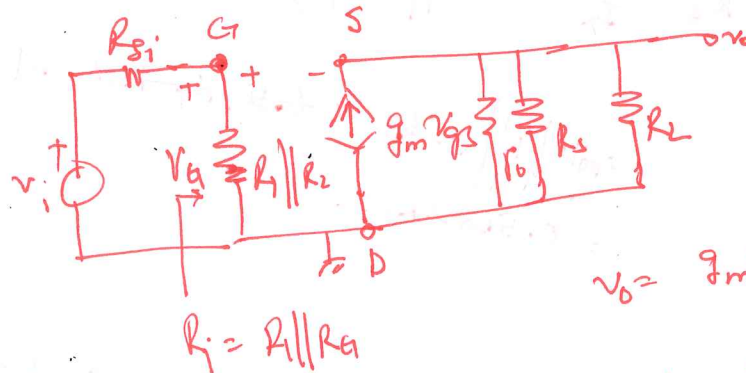 G S
R_Si
+ + -
v_o
+
v_i
V_G
R_1 || R_2
g_m v_gs
r_o
R_s
R_L
D
v_o = g_m
R_i = R_1 || R_G